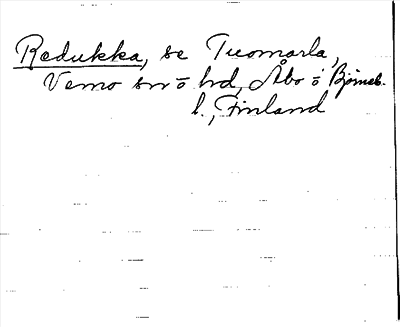 Redukka, se Tuomarla,
Vemo sn ō hd, Åbo ō Bjørneb.
l., Finland